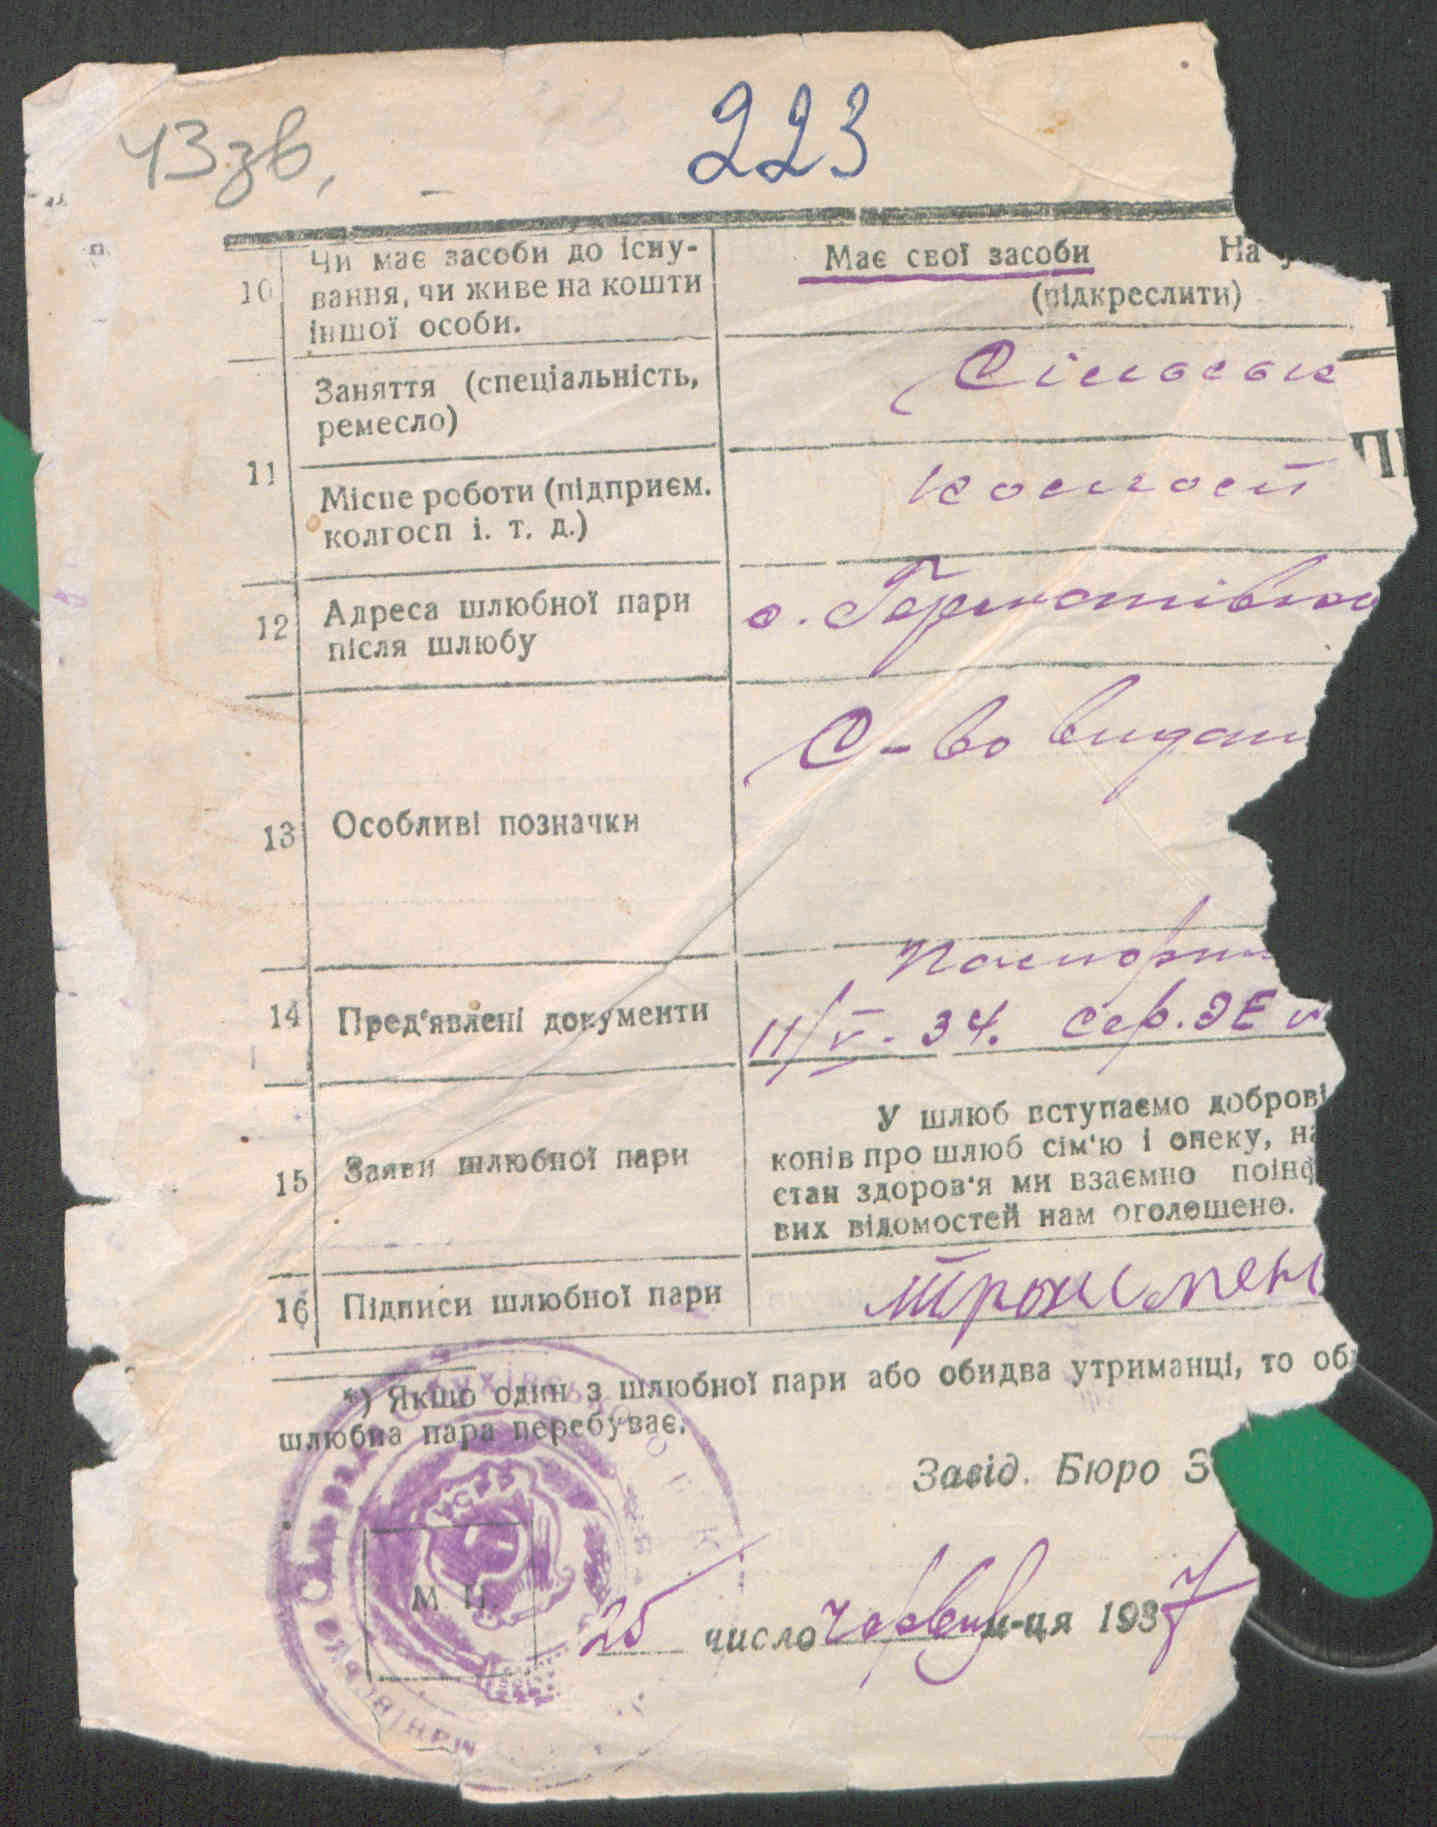 43 зв,
223
10 Чи має засоби до існу-
вання, чи живе на кошти
іншої особи.
Має свої засоби На у
(підкреслити)
11 Заняття (спеціальність,
ремесло)
Місце роботи (підприєм.
колгосп і. т. д.)
колгосп
12 Адреса шлюбної пари
після шлюбу
13 Особливі позначки
С-во видан
14 Пред'явлені документи
Паспорт
11/V-34. сер. ЭЕ
15 Заяви шлюбної пари
У шлюб вступаємо доброві
конів про шлюб сім'ю і опеку, на
стан здоров'я ми взаємно поінф
вих відомостей нам оголошено.
16 Підписи шлюбної пари
*) Якщо один з шлюбної пари або обидва утриманці, то об
шлюбна пара перебуває.
Завід. Бюро З
М П.
УСРР
25 число червня м-ця 1937